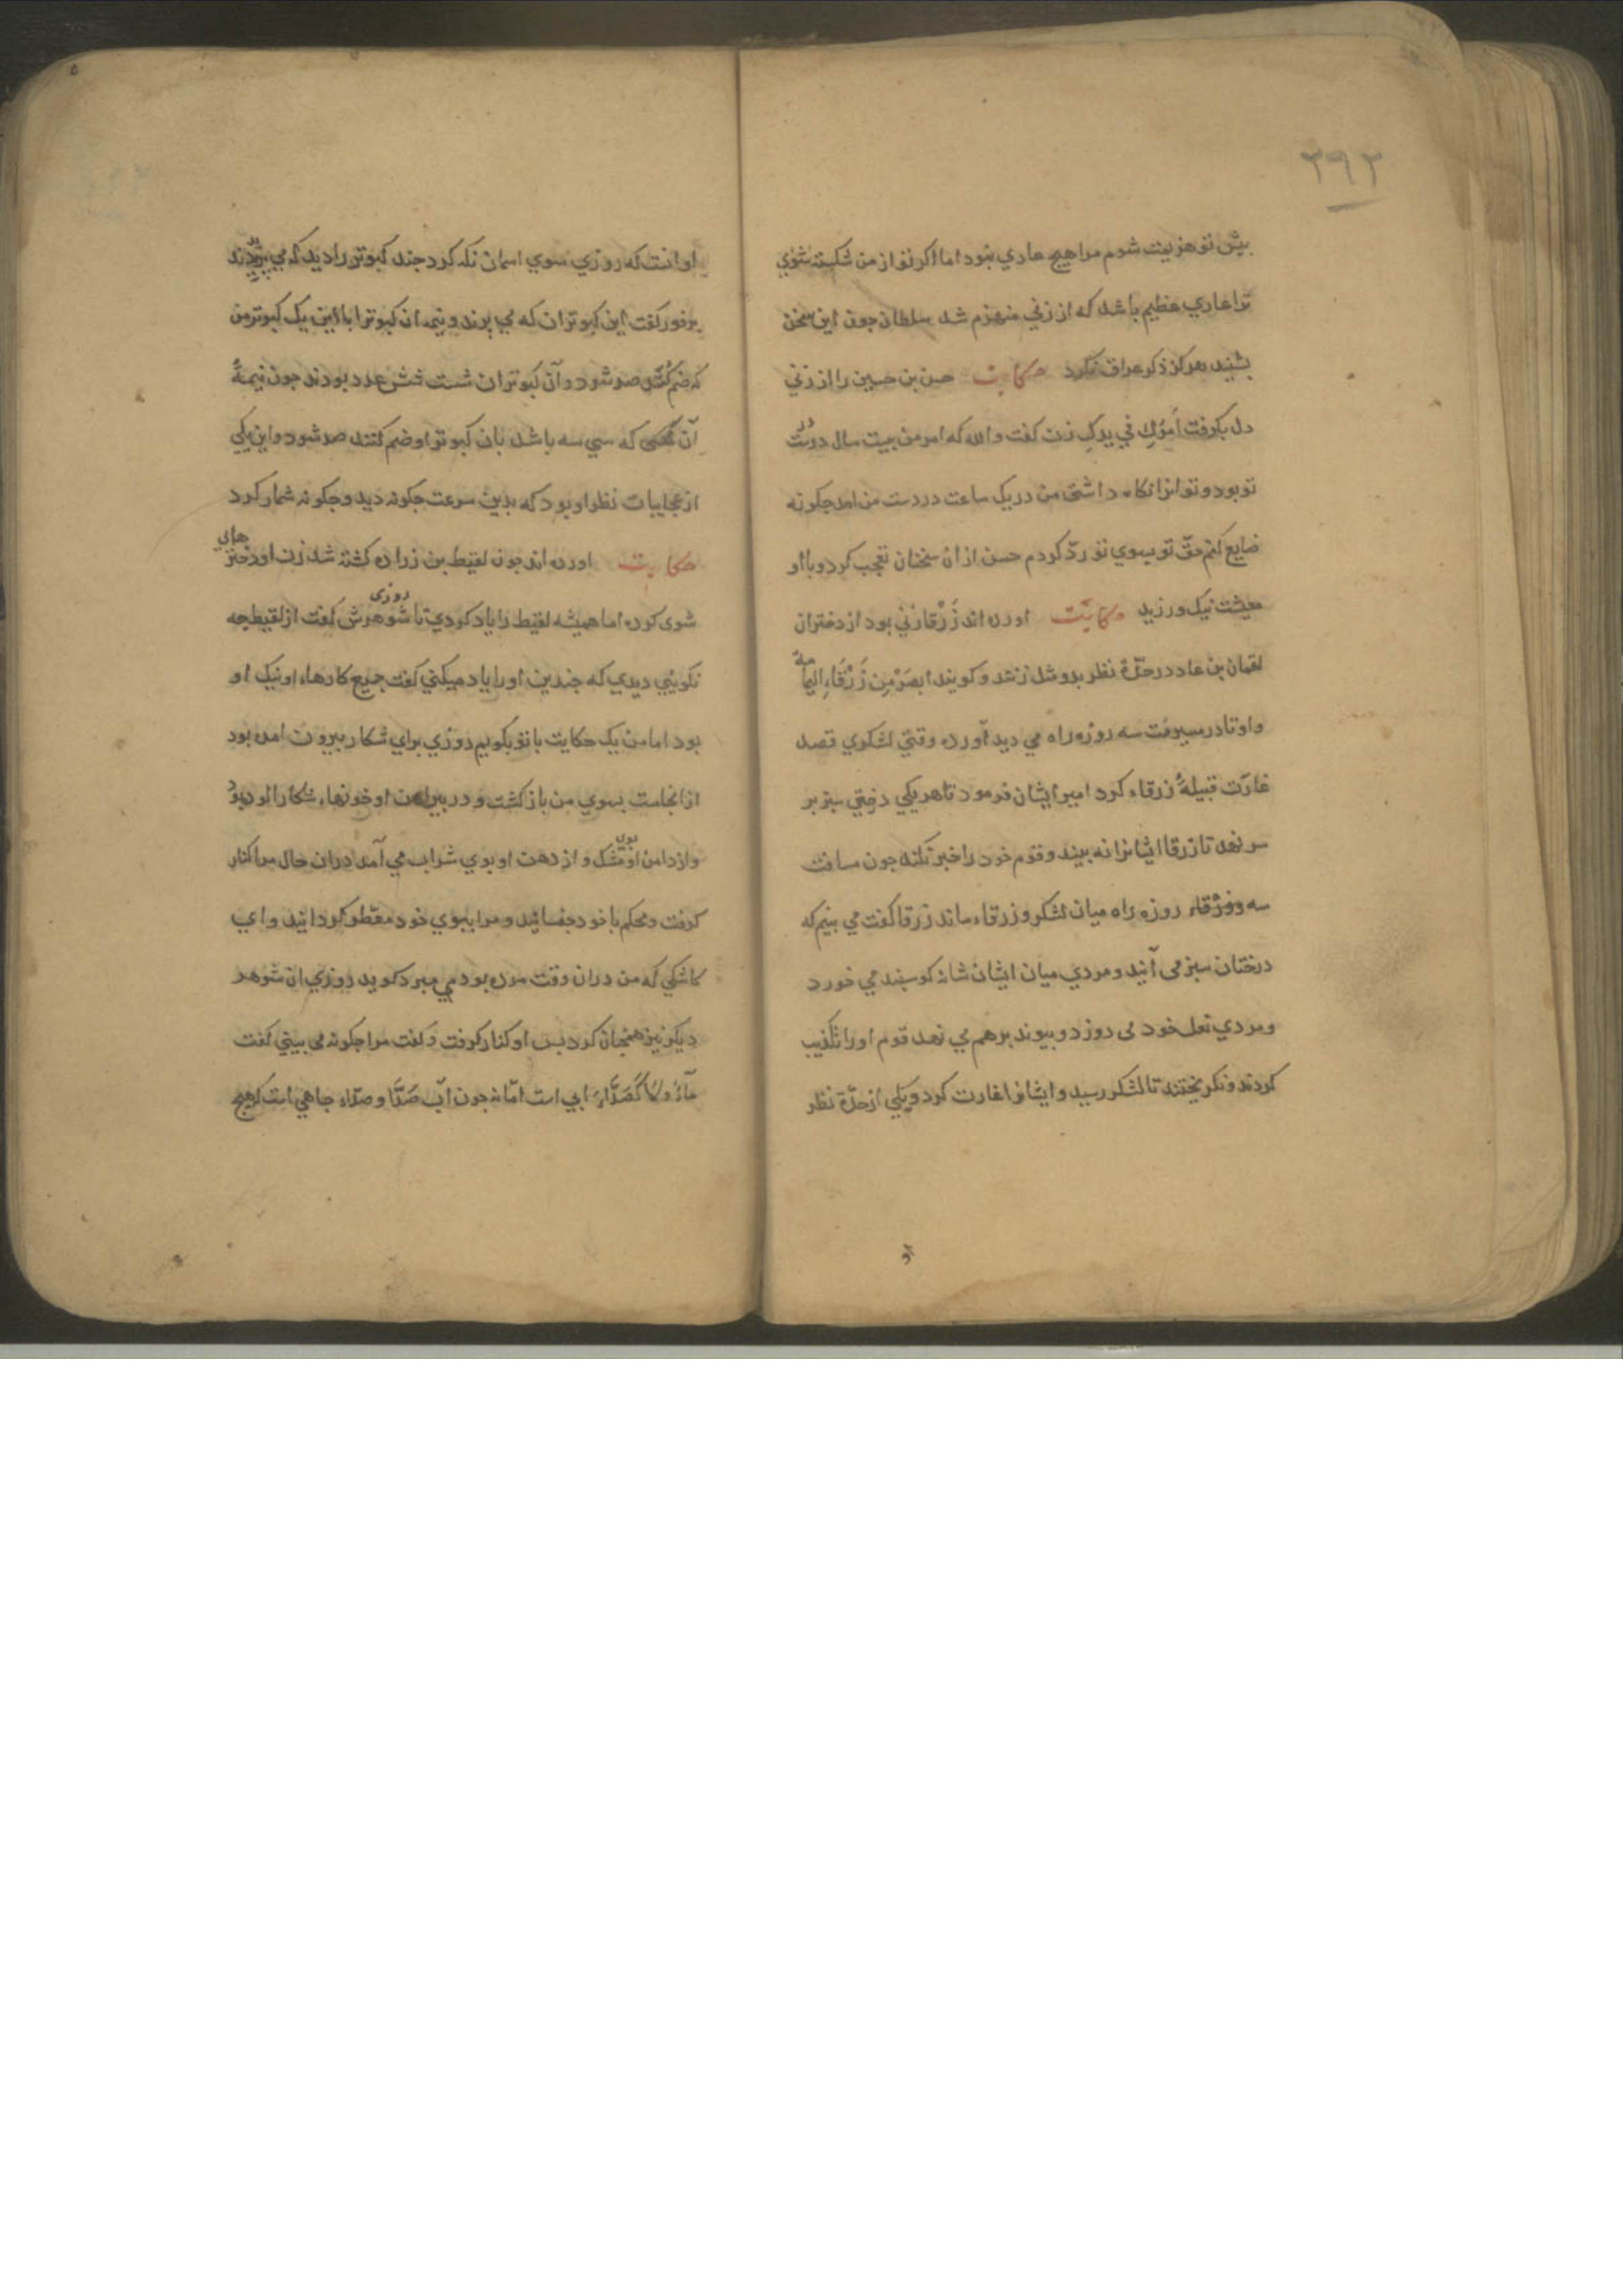 ۳۹۳
پیش تو هزیمت شوم مرا هیچ عاری نبود اما اکر تو از من شکسته شوی
ترا عاری عظیم باشد که از زنی منهزم شد سلطان چون این سخن
بشنید هرکز ذکر عراق نکرد حکایت حسن بن حسین را از زنی
دل بکرفت امرُکِ فی یدکِ زن کفت والله که امر من بیست سال در دست
تو بود و تو انرا نکاه داشتی من در یک ساعت در دست من امد چکونه
ضایع کنم حق تو بسوی تو ردّ کردم حسن از ان سخنان تعجب کرد و با او
معیشت نیک ورزید حکایت اورده اند زَرْقا زنی بود از دختران
لقمان بن عاد در حدّة نظر بدو مثل زنند و کویند ابصَرْ مِن زَرْقَاءِ الیمامة
و او تا در مسیرت سه روزه راه می دید آورده وقتی لشکری قصد
غارت قبیلهٔ زرقاء کرد امیر ایشان فرمود تا هر یکی درختی سبز بر
سر نهد تا زرقا ایشانرا نه بیند و قوم خود را خبر نکند چون مسافت
سه روزه راه میان لشکر و زرقاء ماند زرقا کفت می بینم که
درختان سبز می آیند و مردی میان ایشان شانه کوسپند می خورد
و مردی نعل خود می دوزد و پیوند بر هم می نهد قوم او را تکذیب
کردند و نکریختند تا لشکر رسید و ایشانرا غارت کرد و یکی از حدّة نظر
او انست که روزی سوی اسمان نکه کرد چند کبوتر را دید که می پریدند
بر فور کفت این کبوتران که می پرند و نیمه ان کبوتر با این یک کبوتر من
که ضم کنند صد شود و آن کبوتران شست شش عدد بودند چون نیمهٔ
آن که سی سه باشد بان کبوتر او ضم کنند صد شود و این یکی
از عجایبات نظر او بود که بدین سرعت چکونه دید و چکونه شمار کرد
حکایت اورده اند چون لقیط بن زراره کشته شد زن او
شوی کرد اما همیشه لقیط را یاد کردی تا روزی شوهرش کفت از لقیط چه
نکوئیی دیدی که چندین او را یاد میکنی کفت جمیع کارهاء او نیک او
بود اما من یک حکایت با تو بکویم روزی برای شکار بیرون امده بود
از انجا مست بسوی من باز کشت و در پیراهن او خونهاء شکار الوده بود
و از دامن او بوی مشک و از دهن او بوی شراب می آمد در ان حال مرا کنار
کرفت و محکم با خود چفسانید و مرا ببوی خود معطر کردانید و ای
کاشکی که من در ان وقت مرده بودمی مبرد کوید روزی ان شوهر
دیکر نیز همچنان کرد پس او کنار کرفت و کفت مرا چکونه می بینی کفت
مآءٌ ولا کَصَدَّاءَ ابی است امّا نه چون آب صَدَّا و صدّاء چاهی است که هیچ